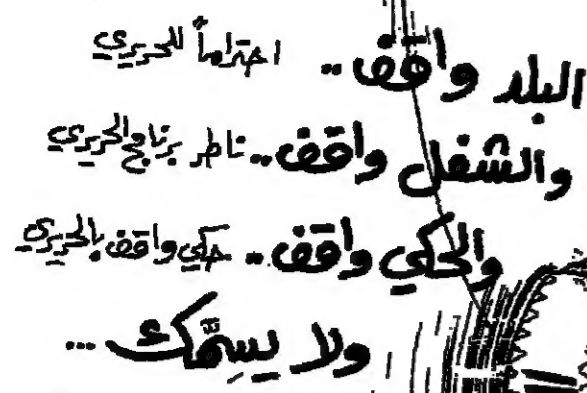 البلد واقف.. احتراماً للحريري
والشغل واقف.. ناطر برنامج الحريري
والحكي واقف.. حكي واقف بالحريري
ولا يسمَّك...